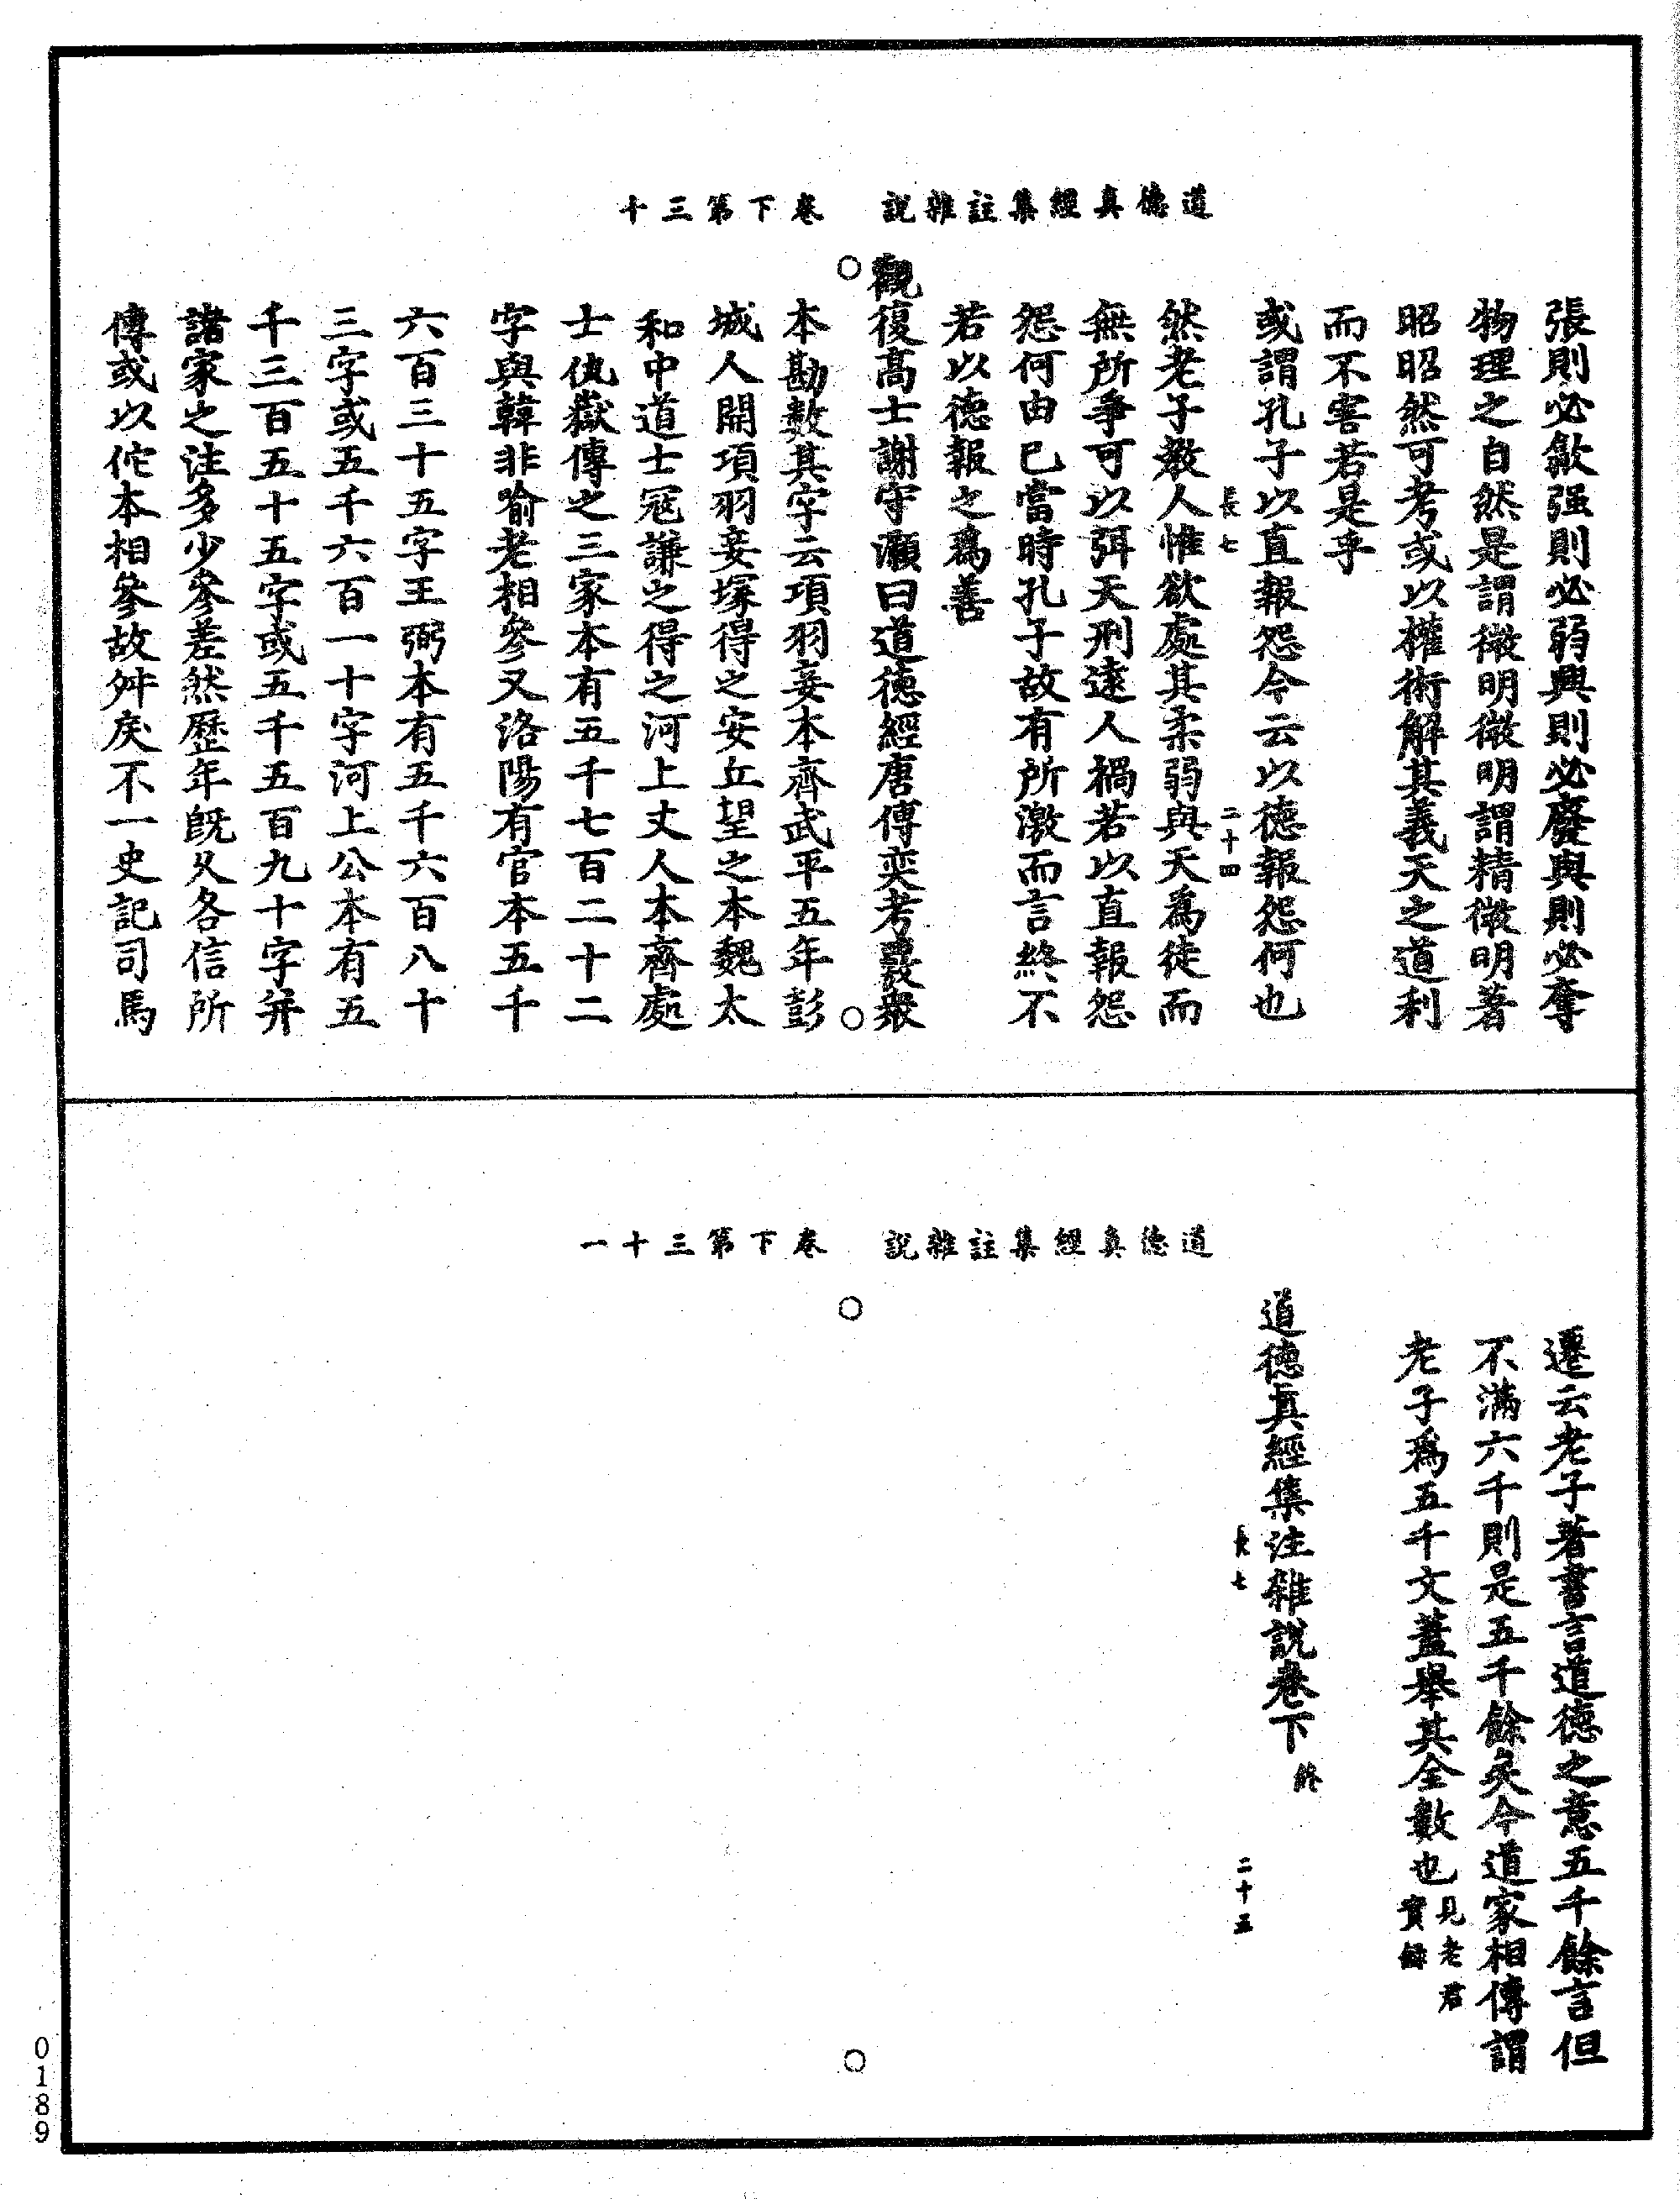 道德真經集註雜說　卷下第三十
張則必歙强則必弱興則必廢與則必奪
物理之自然是謂微明微明謂精微明著
昭昭然可考或以權術解其義天之道利
而不害若是乎
或謂孔子以直報怨今云以德報怨何也
長七　二十四
然老子教人惟欲處其柔弱與天爲徒而
無所爭可以弭天刑遠人禍若以直報怨
怨何由已當時孔子故有所激而言終不
若以德報之爲善
觀復高士謝守灝曰道德經唐傅奕考覈衆
本勘數其字云項羽妾本齊武平五年彭
城人開項羽妾塚得之安丘望之本魏太
和中道士寇謙之得之河上丈人本齊處
士仇嶽傳之三家本有五千七百二十二
字與韓非喻老相參又洛陽有官本五千
六百三十五字王弼本有五千六百八十
三字或五千六百一十字河上公本有五
千三百五十五字或五千五百九十字并
諸家之注多少參差然歷年既久各信所
傳或以佗本相參故舛戾不一史記司馬
道德真經集註雜說　卷下第三十一
遷云老子著書言道德之意五千餘言但
不滿六千則是五千餘矣今道家相傳謂
老子爲五千文蓋舉其全數也見老君實錄
道德真經集注雜說卷下終
長七　二十五
0189